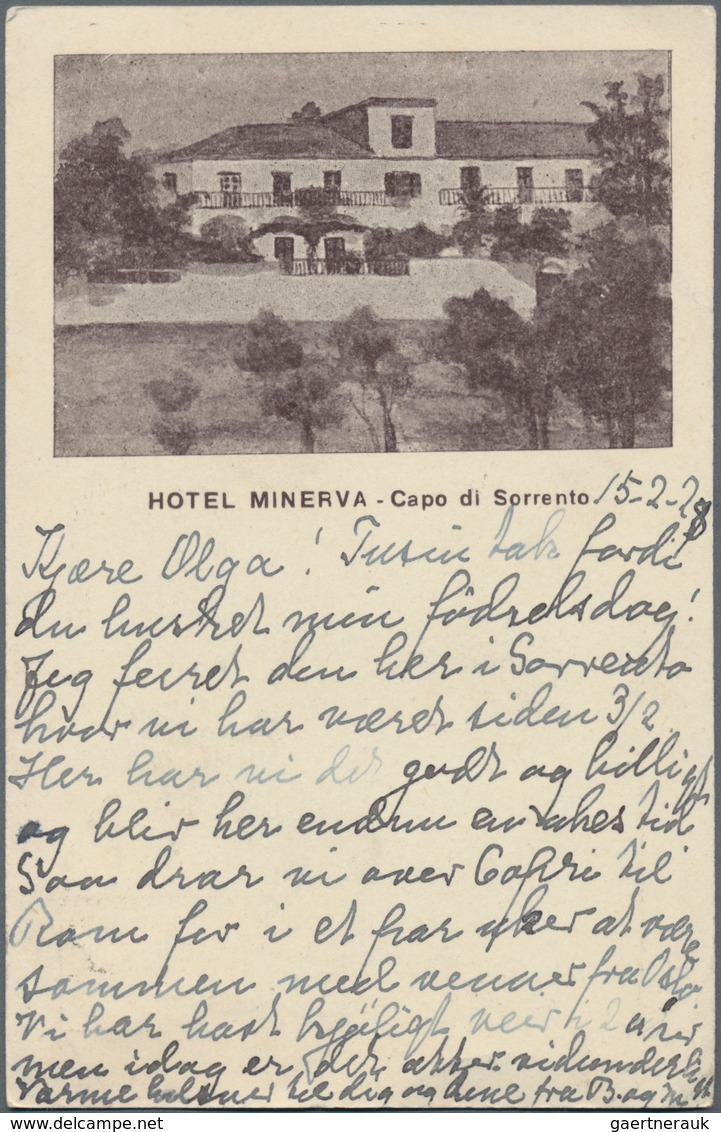 HOTEL MINERVA - Capo di Sorrento 15-2-28
Kjære Olga! Tusin tak fordi
du husket min födselsdag!
Jeg feiret den her i Sorrento
hvor vi har været siden 3/2
Her har vi det godt og billigt
og blir her endnu en ukes tid
Saa drar vi over Capri til
Rom for i et par uker at være
sammen med venner fra Oslo
Vi har hat kjøligt veir i 2
men idag er det atter vidunderligt
Varme hilsner til dig og dine fra B. og m
gaertnerauk